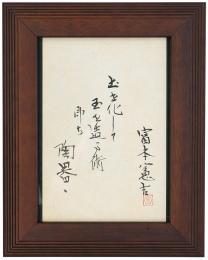 土を化して
玉を造る術
即ち
陶器
富本憲吉